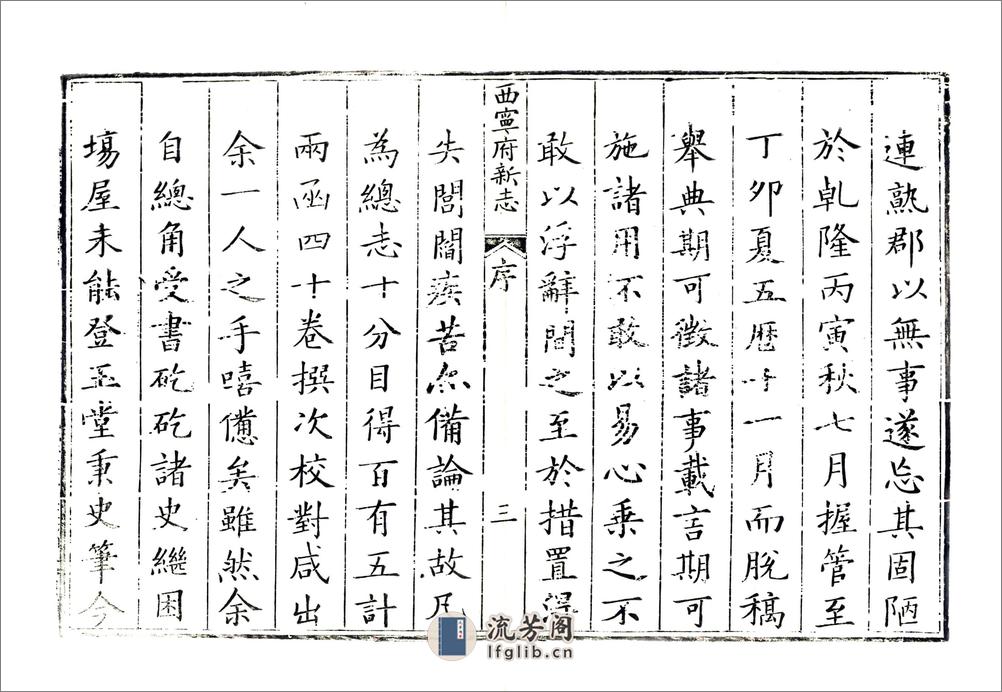 連熟郡以無事遂忘其固陋
於乹隆丙寅秋七月握管至
丁卯夏五曆十一月而脫稿
舉典期可徵諸事載言期可
施諸用不敢以易心乗之不
敢以浮辭間之至於措置得
西寧府新志
序
三
失閭閻疾苦尒備論其故凡
為總志十分目得百有五計
兩函四十巻撰次校對咸出
余一人之手嘻憊矣雖然余
自總角受書矻矻諸史繼困
塲屋未能登玉堂秉史筆今
流芳阁
lfglib.cn